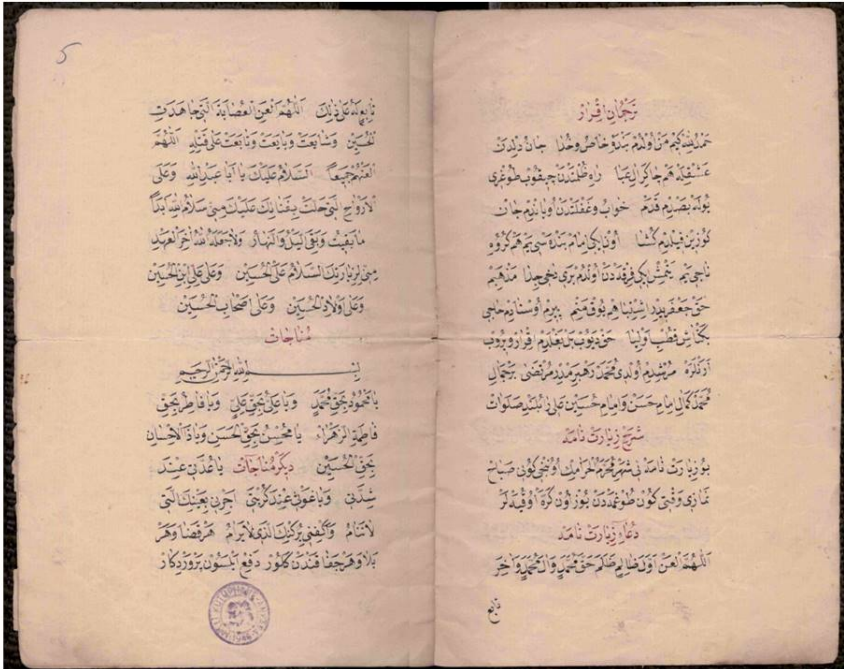 ترجمان اقرار
حمد لله كیم من اولدم بنده خاص وخدا جان دلدن
عشقله هم چاكر ال عبا راه ظلمتدن چیقوب طوغری
یوله بصدم قدم خواب وغفلتدن اویاندم جان
كوزین قیلدم كشا اون ایكی امام بنده سی یم هم كروه
ناجی یم یتمش ایكی فرقه دن اولدم بری دخی جدا مذهبم
حق جعفریدر اشتباهم یوقدر منم پیرم اوستادم حاجی
بكتاش قطب اولیا حق دیوب بل بغلدم اقرار ویروب
ارنلره مرشدم اولدی محمد رهبرمدر مرتضی بر جمال
محمد كمال امام حسن وامام حسین علی ئی بلند صلوات
شرح زیارت نامه
بو زیارت نامه ئی شهر محرم الحرامك اوننجی كونی صباح
نمازی وقتی كون طوغمه دن یوز اون كره اوقیه لر
دعاء زیارت نامه
اللهم العن اول ظالم ظلم حق محمد وال محمد واخر
تابع
5
تابع له علی ذلك اللهم العن العصابة التی جاهدت
الحسین وشایعت وبایعت وتابعت علی قتله اللهم
العنهم جمیعا السلام علیك یا ابا عبد الله وعلی
الارواح التی حلت بفنائك علیك منی سلام الله ابدا
ما بقیت وبقی اللیل والنهار ولا جعله الله اخر العهد
منی لزیارتك السلام علی الحسین وعلی علی ابن الحسین
وعلی اولاد الحسین وعلی اصحاب الحسین
مناجات
بسم الله الرحمن الرحیم
یا محمود بحق محمد ویا علی بحق علی ویا فاطر بحق
فاطمة الزهراء یا محسن بحق الحسن ویا ذا الاحسان
بحق الحسین دیكر مناجات یا عدتی عند
شدتی ویا غوثی عند كربتی احرسنی بعینك التی
لا تنام واكنفنی بركنك الذی لا یرام هر قضا وهر
بلا وهر جفا قندن كلور دفع ایلسون پروردكار